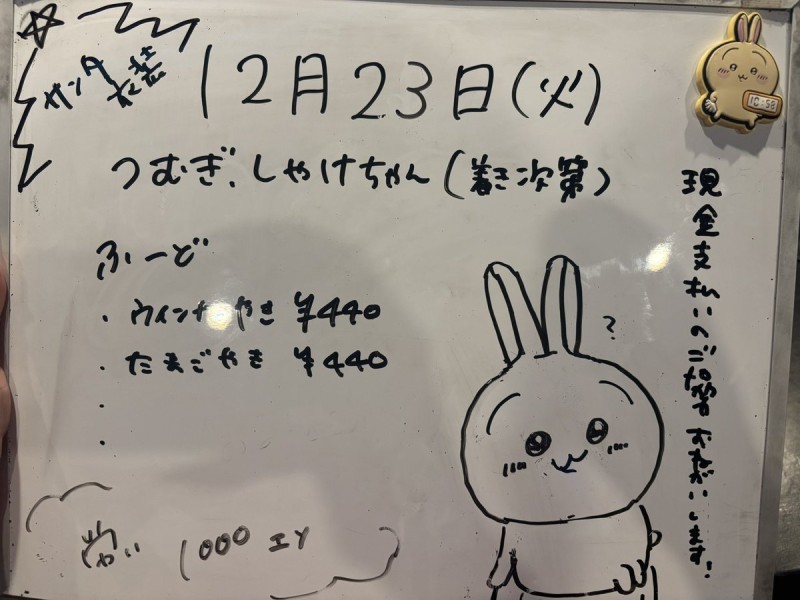 12月23日(火)
つむぎ、しゃけちゃん(着き次第)
ふーど
・ウインナーやき ¥440
・たまごやき ¥440
・
・
1000 エン
?
10:58
現金支払いのご協力おねがいします!